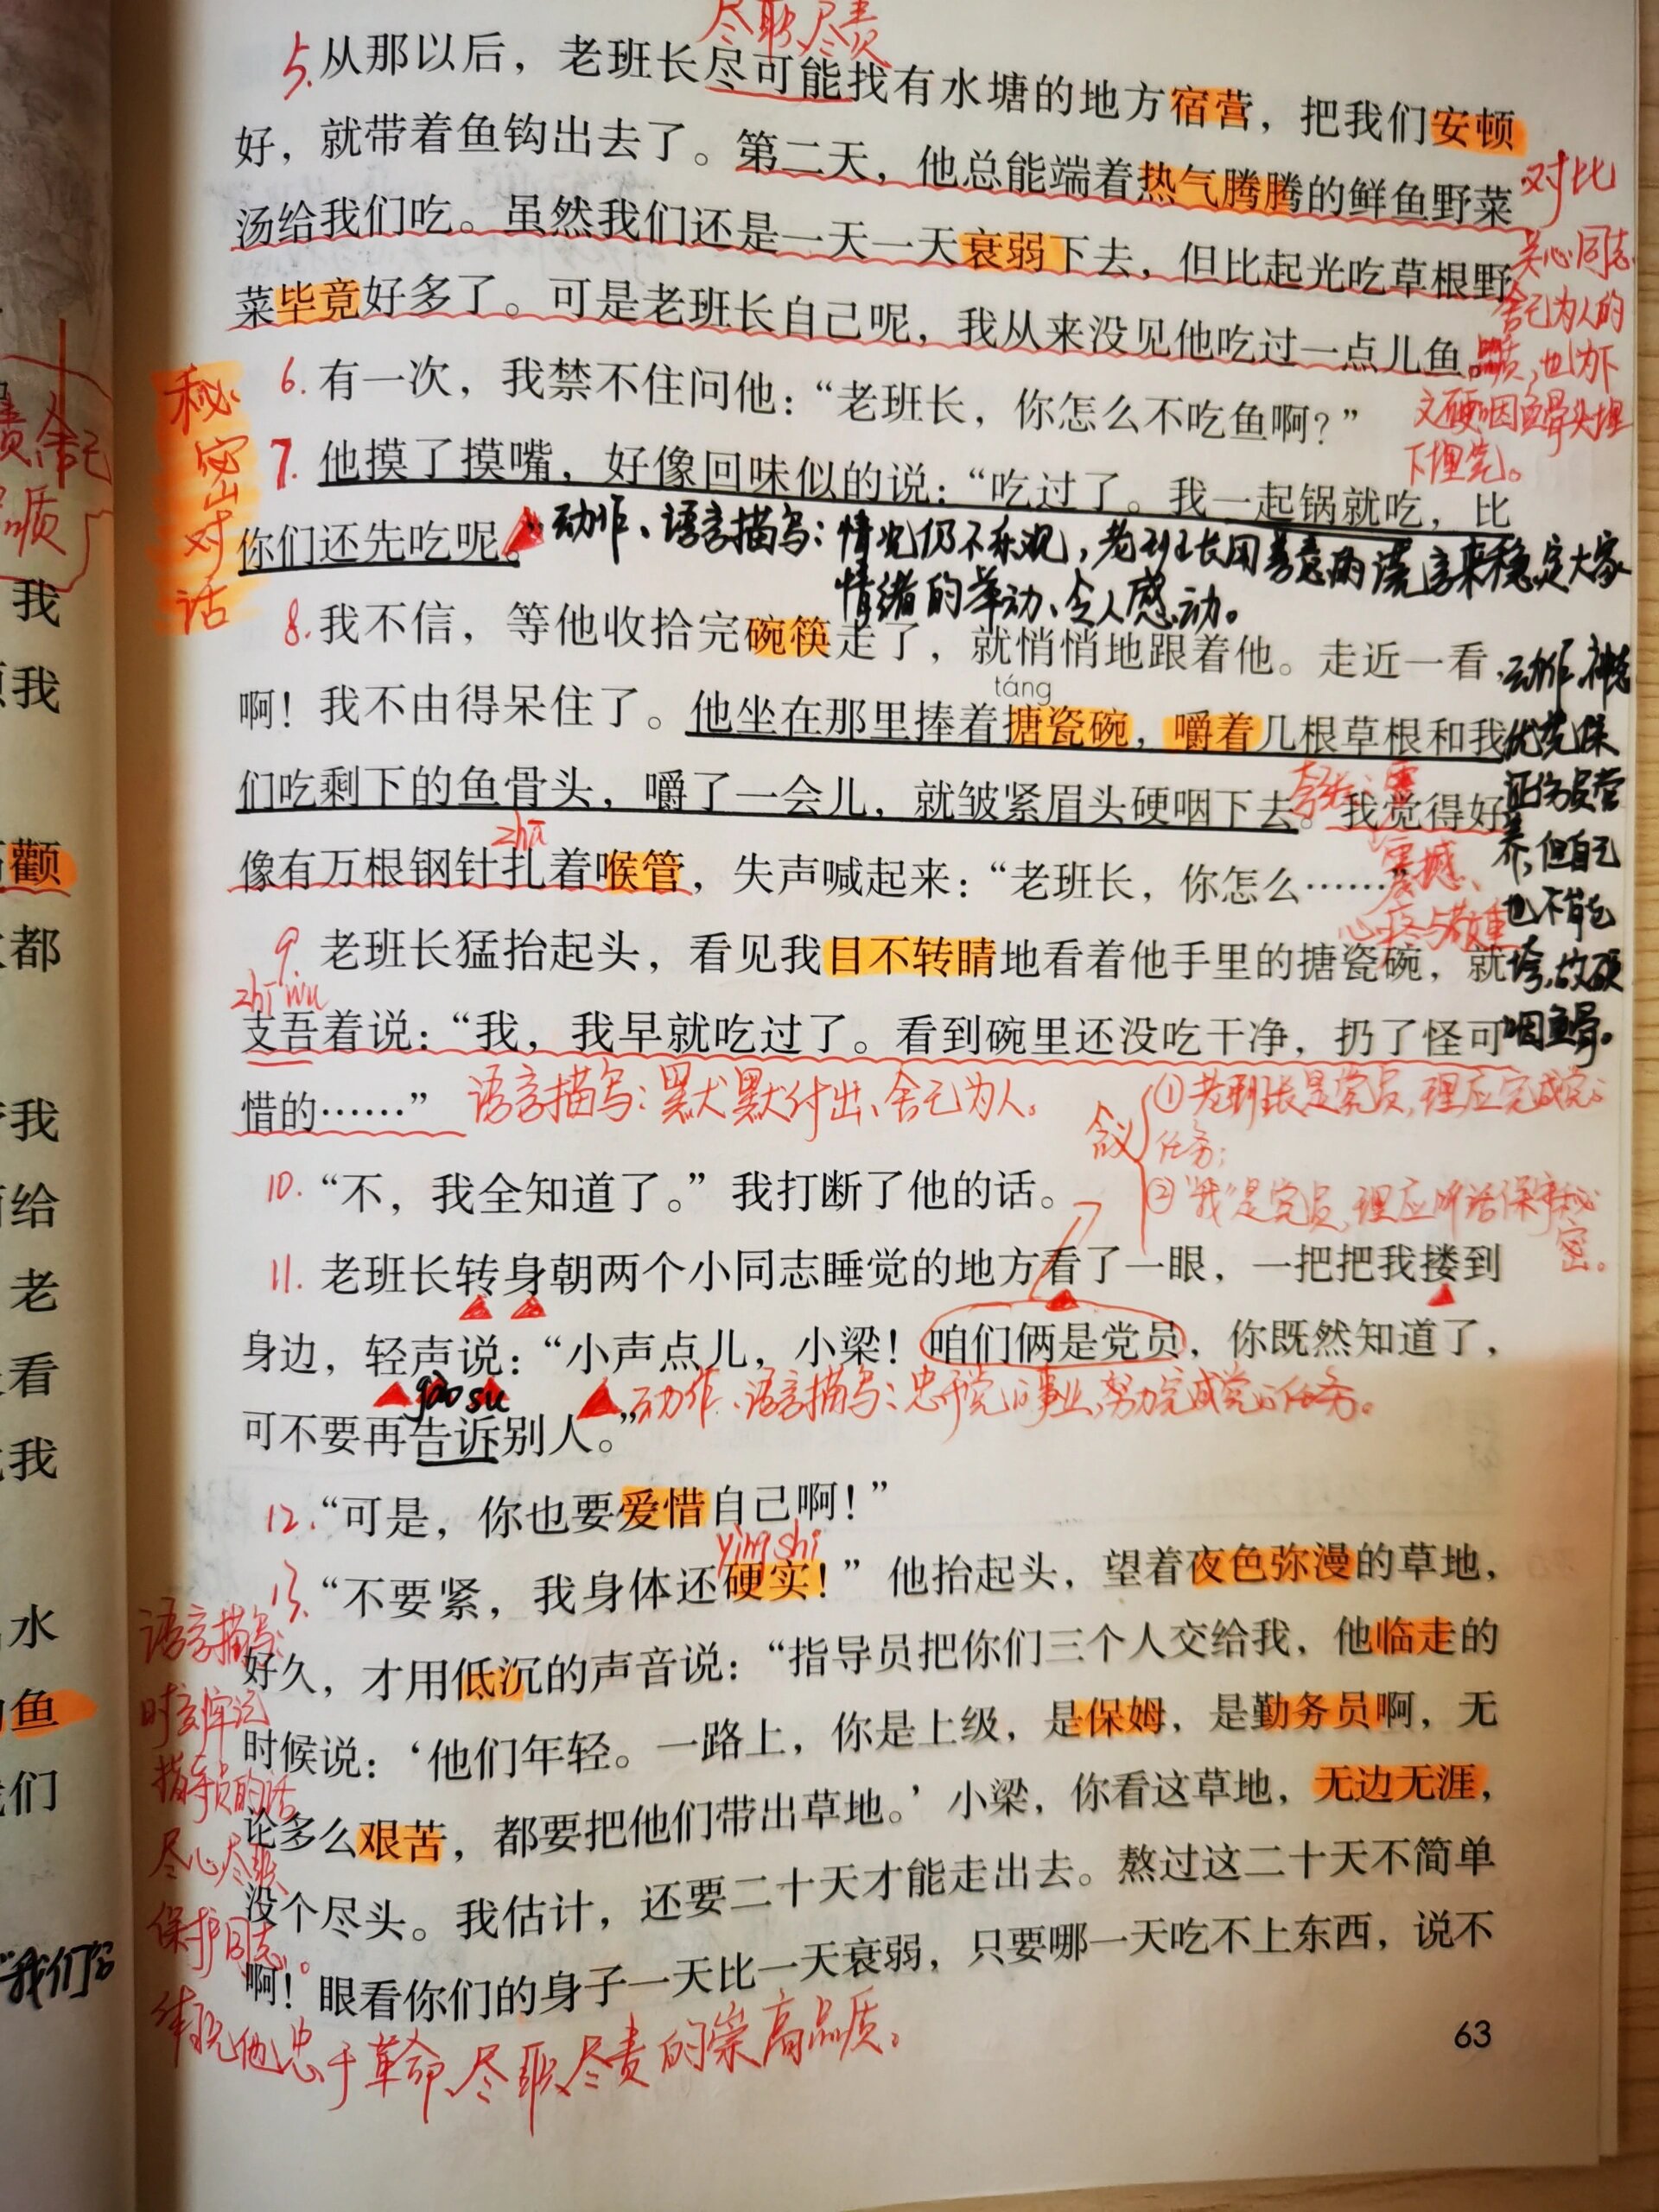 尽职尽责
5.从那以后，老班长尽可能找有水塘的地方宿营，把我们安顿
好，就带着鱼钩出去了。第二天，他总能端着热气腾腾的鲜鱼野菜
对比
汤给我们吃。虽然我们还是一天一天衰弱下去，但比起光吃草根野
关心同志
菜毕竟好多了。可是老班长自己呢，我从来没见他吃过一点儿鱼。
舍己为人的
品质，也为下
文硬咽鱼骨头埋
下埋笔。
秘密对话
6.有一次，我禁不住问他：“老班长，你怎么不吃鱼啊？”
7.他摸了摸嘴，好像回味似的说：“吃过了。我一起锅就吃，比
你们还先吃呢。”
动作、语言描写：情况仍不乐观，老班长用善意的谎言来稳定大家
情绪的举动、令人感动。
8.我不信，等他收拾完碗筷走了，就悄悄地跟着他。走近一看，
táng
啊！我不由得呆住了。他坐在那里捧着搪瓷碗，嚼着几根草根和我
们吃剩下的鱼骨头，嚼了一会儿，就皱紧眉头硬咽下去。我觉得好
zhā
像有万根钢针扎着喉管，失声喊起来：“老班长，你怎么……”
震撼、
心疼与敬重
动作、神态
优先保
证伤员营
养，但自己
也不能
咽鱼骨。
9.老班长猛抬起头，看见我目不转睛地看着他手里的搪瓷碗，就
zhī wu
支吾着说：“我，我早就吃过了。看到碗里还没吃干净，扔了怪可
惜的……”
语言描写：默默付出、舍己为人。
含义
①老班长是党员，理应完成党的
任务；
②“我”是党员，理应听话保守秘
密。
10.“不，我全知道了。”我打断了他的话。
11.老班长转身朝两个小同志睡觉的地方看了一眼，一把把我搂到
身边，轻声说：“小声点儿，小梁！咱们俩是党员，你既然知道了，
gào su
动作、语言描写：忠于党的事业，努力完成党的任务。
可不要再告诉别人。”
12.“可是，你也要爱惜自己啊！”
yìng shi
13.“不要紧，我身体还硬实！”他抬起头，望着夜色弥漫的草地，
好久，才用低沉的声音说：“指导员把你们三个人交给我，他临走的
时候说：‘他们年轻。一路上，你是上级，是保姆，是勤务员啊，无
论多么艰苦，都要把他们带出草地。’小梁，你看这草地，无边无涯，
没个尽头。我估计，还要二十天才能走出去。熬过这二十天不简单
啊！眼看你们的身子一天比一天衰弱，只要哪一天吃不上东西，说不
语言描写：
时刻牢记
指导员的话
尽心尽职
保护同志。
体现他忠于革命、尽职尽责的崇高品质。
63